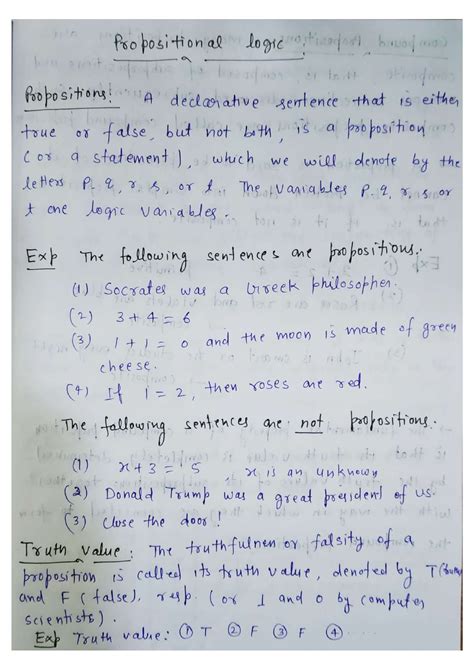 Propositional logic :
Propositions: A declarative sentence that is either
true or false, but not both, is a proposition
(or a statement), which we will denote by the
letters p, q, r, s, or t. The variables p, q, r, s or
t are logic variables.
Exp The following sentences are propositions.
(1) Socrates was a Greek philosopher.
(2) 3+4=6
(3) 1+1=0 and the moon is made of green
cheese.
(4) If 1=2, then roses are red.
The following sentences are not propositions.
(1) x+3=5 x is an unknown
(2) Donald Trump was a great president of US.
(3) Close the door!
Truth value: The truthfulness or falsity of a
proposition is called its truth value, denoted by T(true)
and F (false), resp. (or 1 and 0 by computer
scientists).
Exp Truth value: ① T ② F ③ F ④ ...